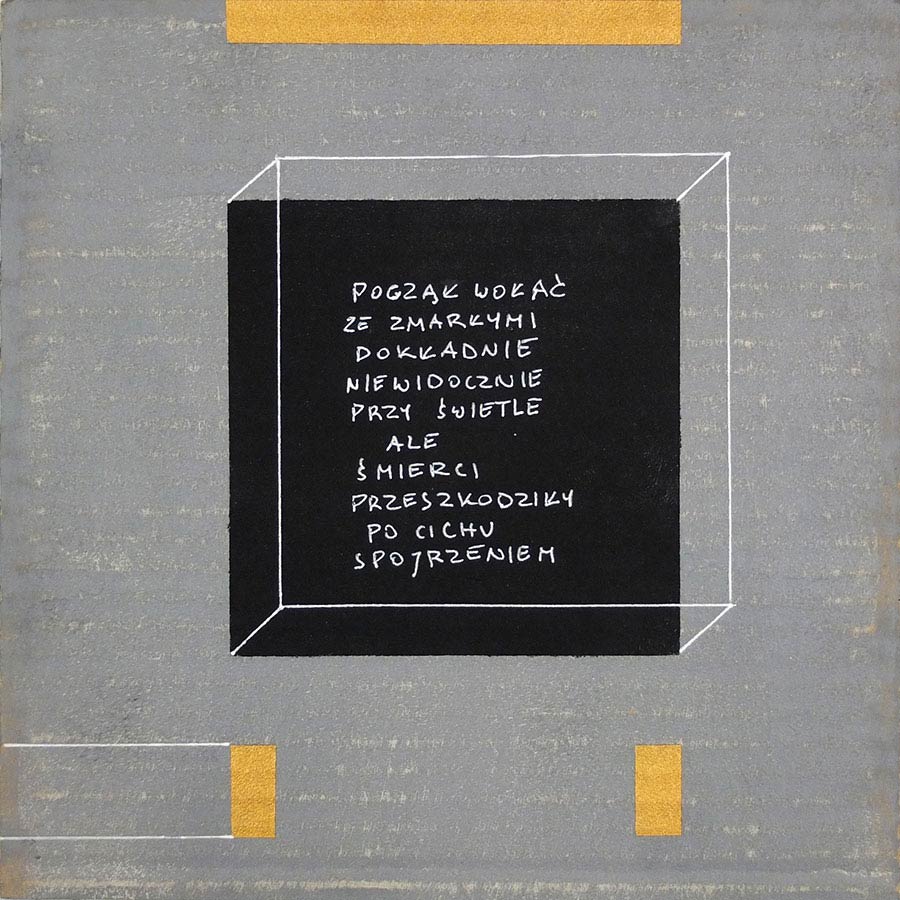 POCZĄŁ WOŁAĆ
ZE ZMARŁYMI
DOKŁADNIE
NIEWIDOCZNIE
PRZY ŚWIETLE
ALE
ŚMIERCI
PRZESZKODZIŁY
PO CICHU
SPOJRZENIEM